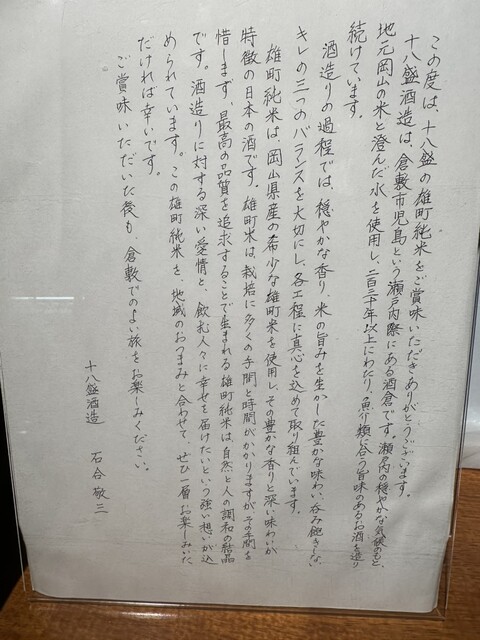 この度は、十八盛の雄町純米をご賞味いただきありがとうございます。
十八盛酒造は、倉敷市児島という瀬戸内際にある酒倉です。瀬戸内の穏やかな気候のもと、
地元岡山の米と澄んだ水を使用し、二百三十年以上にわたり、魚介類に合う旨味のあるお酒を造り
続けています。
酒造りの過程では、穏やかな香り、米の旨みを生かした豊かな味わい、呑み飽きしない
キレの三つのバランスを大切にし、各工程に真心を込めて取り組んでいます。
雄町純米は、岡山県産の希少な雄町米を使用し、その豊かな香りと深い味わいが
特徴の日本の酒です。雄町米は、栽培に多くの手間と時間がかかりますが、その手間を
惜しまず、最高の品質を追求することで生まれる雄町純米は、自然と人の調和の結晶
です。酒造りに対する深い愛情と、飲む人々に幸せを届けたいという強い想いが込
められています。この雄町純米を、地域のおつまみと合わせて、ぜひ一層お楽しみいた
だければ幸いです。
ご賞味いただいた後も、倉敷でのよい旅をお楽しみください。
十八盛酒造 石合敬三